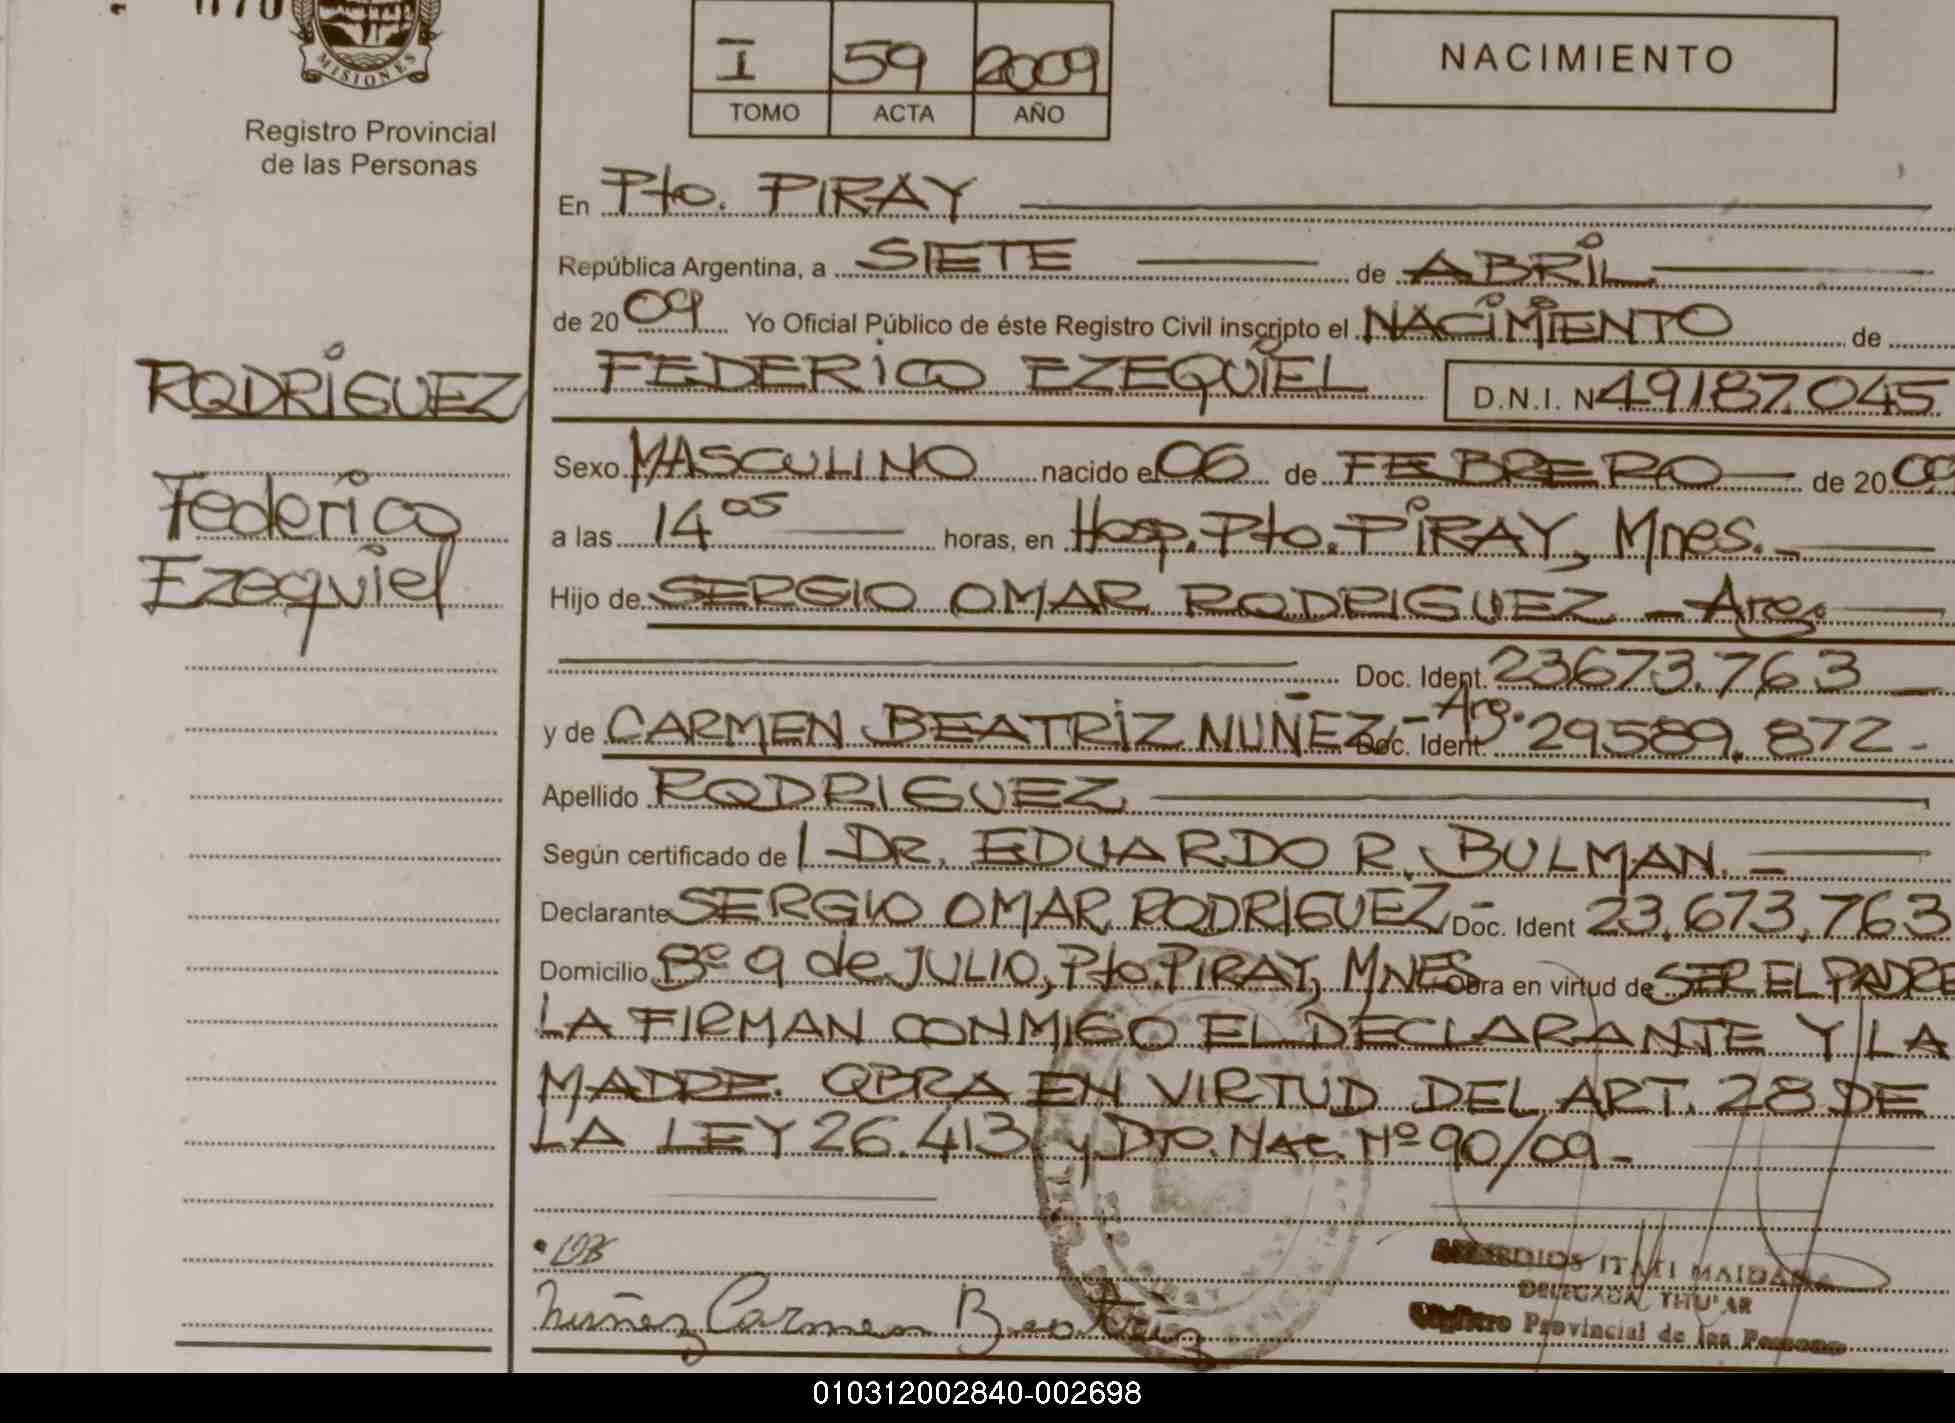 MISIONES
Registro Provincial
de las Personas
I 59 2009
TOMO ACTA AÑO
NACIMIENTO
RODRÍGUEZ
Federico
Ezequiel
En Pto. PIRAY
República Argentina, a SIETE de ABRIL
de 2009 Yo Oficial Público de éste Registro Civil inscripto el NACIMIENTO de
FEDERICO EZEQUIEL D.N.I. N 49187.045
Sexo MASCULINO nacido el 06 de FEBRERO de 2009
a las 14 05 horas, en Hosp. Pto. PIRAY, Mnes.
Hijo de SERGIO OMAR RODRIGUEZ - Arg.
Doc. Ident. 23673.763
y de CARMEN BEATRIZ NUÑEZ - Arg. Doc. Ident. 29589.872 -
Apellido RODRIGUEZ
Según certificado de l DR. EDUARDO R. BULMAN. -
Declarante SERGIO OMAR RODRIGUEZ - Doc. Ident 23.673.763
Domicilio Bº 9 de JULIO, Pto. PIRAY, MNES Obra en virtud de SER EL PADRE
LA FIRMAN CONMIGO EL DECLARANTE Y LA
MADRE. OBRA EN VIRTUD DEL ART. 28 DE
LA LEY 26.413 y DTO. NAC. Nº 90/09 -
Nuñez Carmen Beatriz
ITATI MAIDANA
DELEGADA
Registro Provincial de las Personas
010312002840-002698